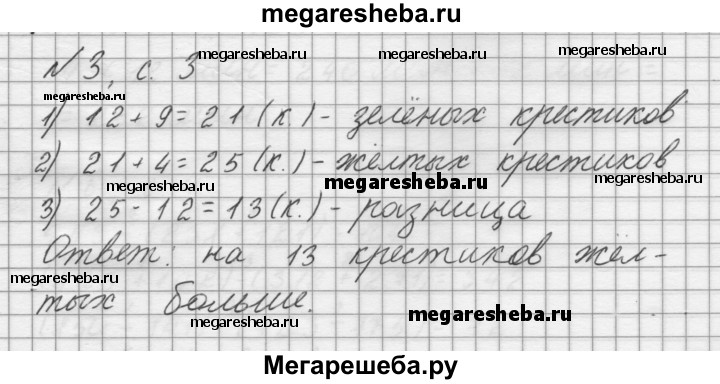 megaresheba.ru
№ 3, с. 3 megaresheba.ru megaresheba.ru
megaresheba.ru
1) 12 + 9 = 21 (к.) - зелёных крестиков
2) 21 + 4 = 25 (к.) - жёлтых крестиков
megaresheba.ru megaresheba.ru megaresheba.ru
3) 25 - 12 = 13 (к.) - разница
Ответ: на 13 крестиков жёл-
megaresheba.ru
тых больше.
megaresheba.ru megaresheba.ru
Мегарешеба.ру